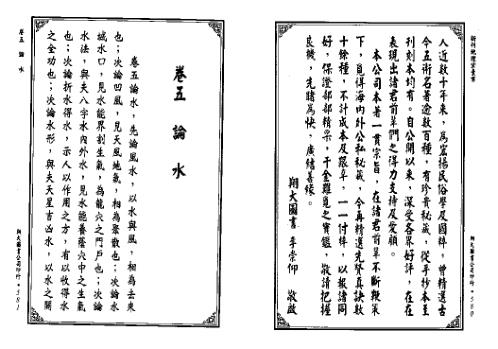 新刊地理索書
人近數十年來，為宣揚民俗學及國粹，曾精選古
今五術名著逾數百種，有珍貴秘藏，從手抄本至
刊刻本均有。自公開以來，深受各界好評，在在
表現出諸君前輩們之得力支持及愛顧。
本公司本著一貫宗旨，在諸君前輩不斷鞭策
下，覓得海內外公私秘藏，今再精選先賢真訣數
十餘種，不計成本及艱辛，一一付梓，以報諸同
好，保證部部精深，千金難覓之寶鑑，敬請把握
良機，先睹為快，廣結善緣。
翔大圖書 李崇仰 敬啟
翔大圖書公司印行
卷五 論水
卷五 論水
卷五論水，先論風水，以水與風，相為去來
也；次論凹風，見天風地氣，相為聚散也；次論水
城水口，見水能界割生氣，為龍穴之門戶也；次論
水法，與夫八字水內外水，見水能養蔭穴中之生氣
也；次論折水得水，示人以作用之方，有以收得水
之全功也；次論水形，與夫天星吉凶水，以水之關
翔大圖書公司印行•581